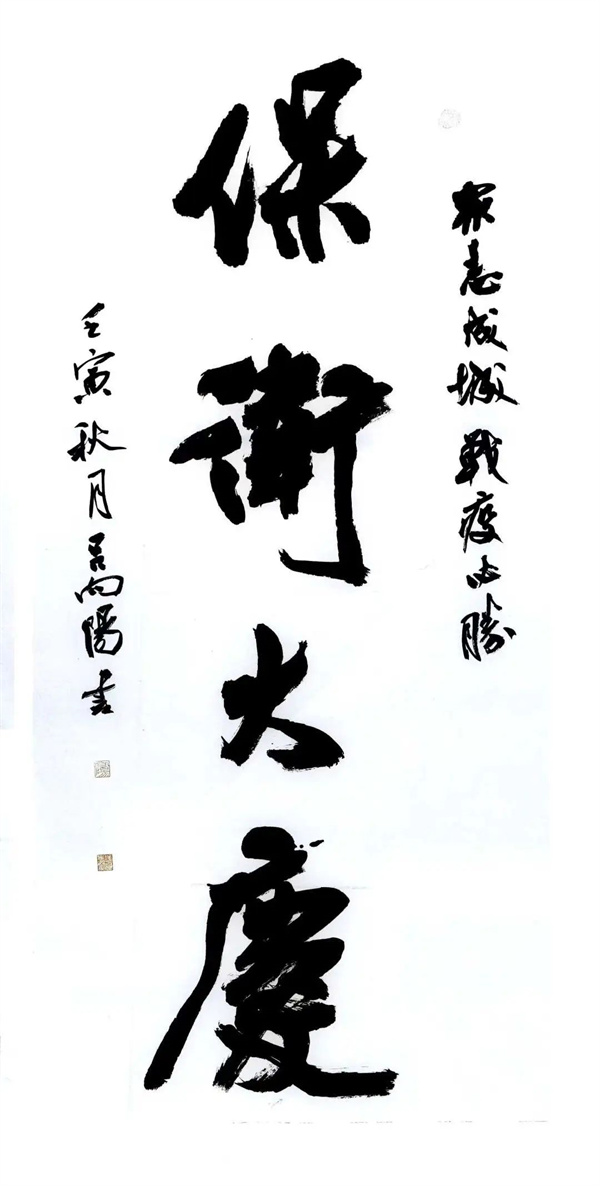 眾志成城戰疫必勝
保衛大慶
壬寅秋月吕向陽書